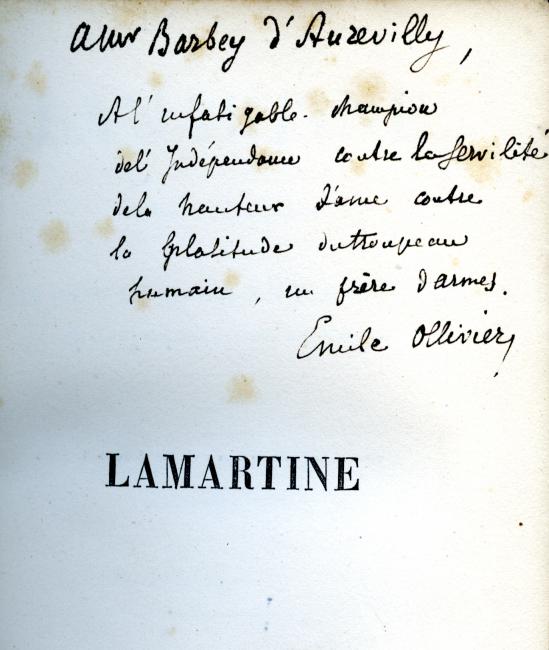 a Mr Barbey d'Aurevilly,
A l'infatigable champion
de l'Indépendance contre la Servilité
de la hauteur d'âme contre
la platitude du troupeau
humain, un frère d'armes.
Emile Ollivier,
LAMARTINE